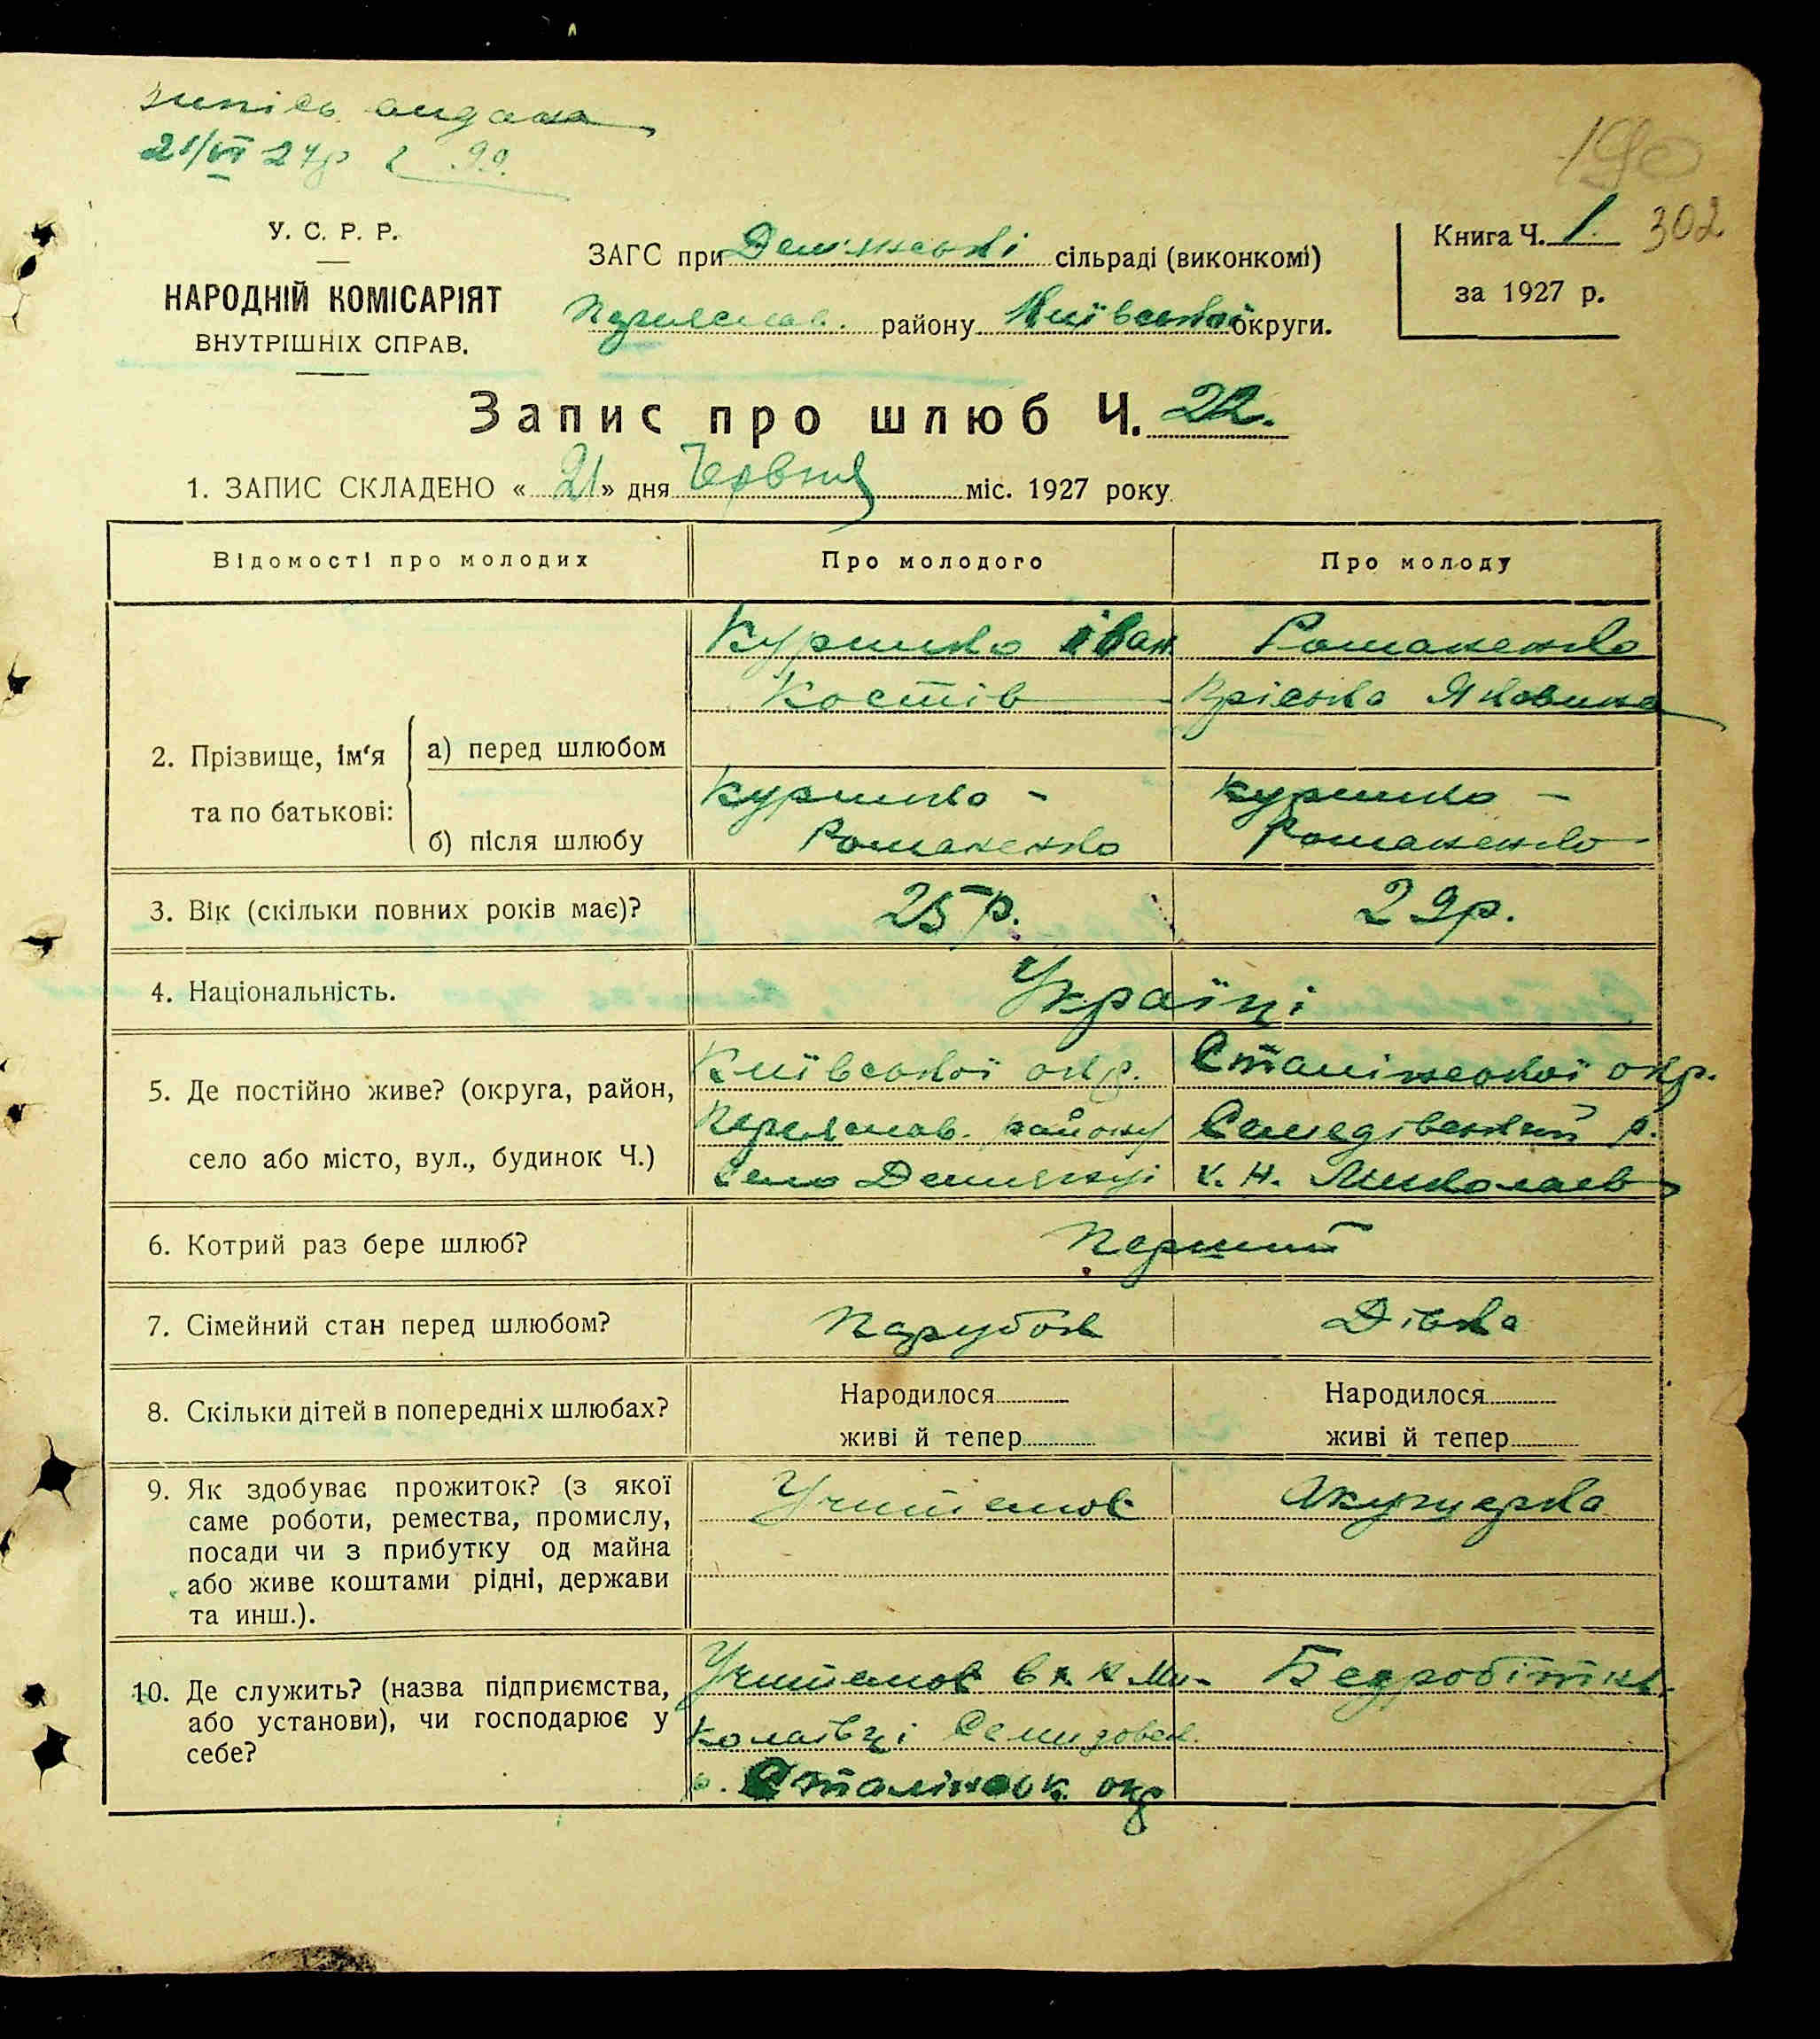 21/VI 27р
190
302
У. С. Р. Р.
НАРОДНІЙ КОМІСАРІЯТ
ВНУТРІШНІХ СПРАВ.
ЗАГС при сільраді (виконкомі)
району Київської округи.
Книга Ч. 1.
за 1927 р.
Запис про шлюб Ч. 22.
1. ЗАПИС СКЛАДЕНО « 21 » дня Червня міс. 1927 року.
Відомості про молодих Про молодого Про молоду
Іван Романенко
Костів Яковина
2. Прізвище, ім'я та по батькові:
а) перед шлюбом
Куришко - Куришко -
б) після шлюбу Романенко Романенко
3. Вік (скільки повних років має)? 25 р. 29 р.
4. Національність. Українці
5. Де постійно живе? (округа, район,
село або місто, вул., будинок Ч.)
Київської окр. Сталінської окр.
Переяслав. району р.
село Демьянці х. Н.
6. Котрий раз бере шлюб? Перший
7. Сімейний стан перед шлюбом? Парубок Дівка
8. Скільки дітей в попередніх шлюбах?
Народилося Народилося
живі й тепер живі й тепер
9. Як здобуває прожиток? (з якої
саме роботи, ремества, промислу,
посади чи з прибутку од майна
або живе коштами рідні, держави
та инш.).
Учителює Акушерка
10. Де служить? (назва підприємства,
або установи), чи господарює у
себе?
Учителює в х. Н. Ми- Безробітна
колаївці
р. Сталінськ. окр